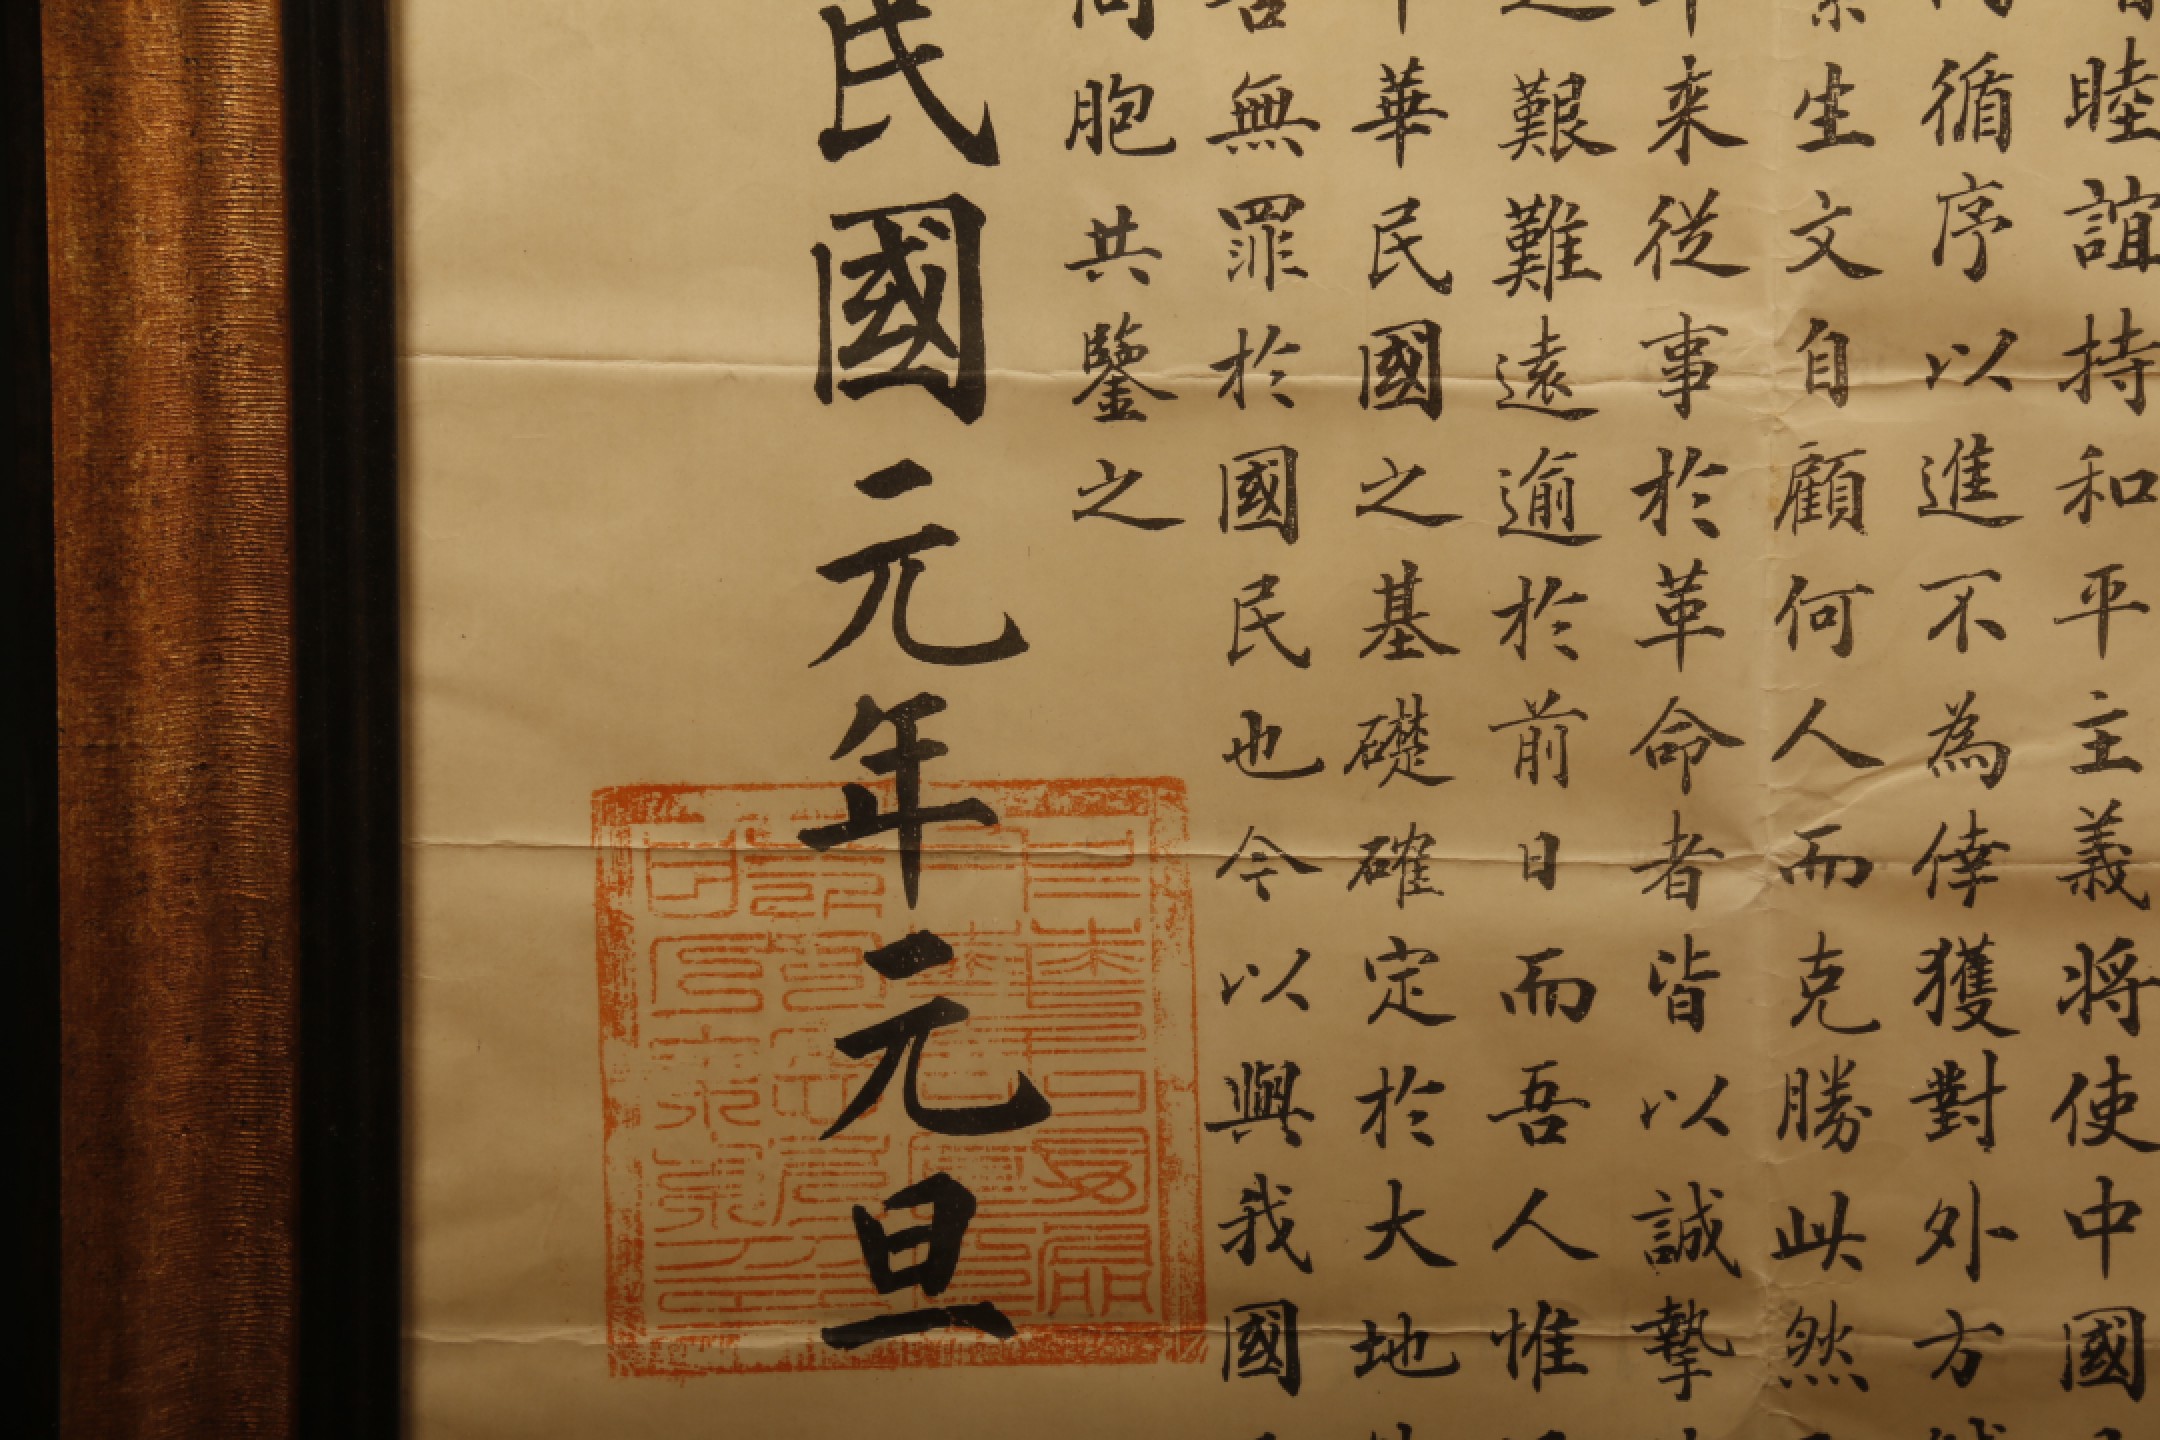 睦誼持和平主義將使中國
循序以進不為倖獲對外方
生文自顧何人而克勝此然
來從事於革命者皆以誠摯
艱難遠逾於前日而吾人惟
華民國之基礎確定於大地
無罪於國民也今以與我國
同胞共鑒之
民國元年元旦